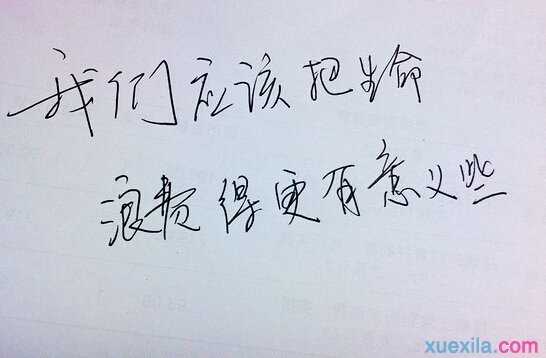 我们应该把生命
浪费得更有意义些
xuexila.com